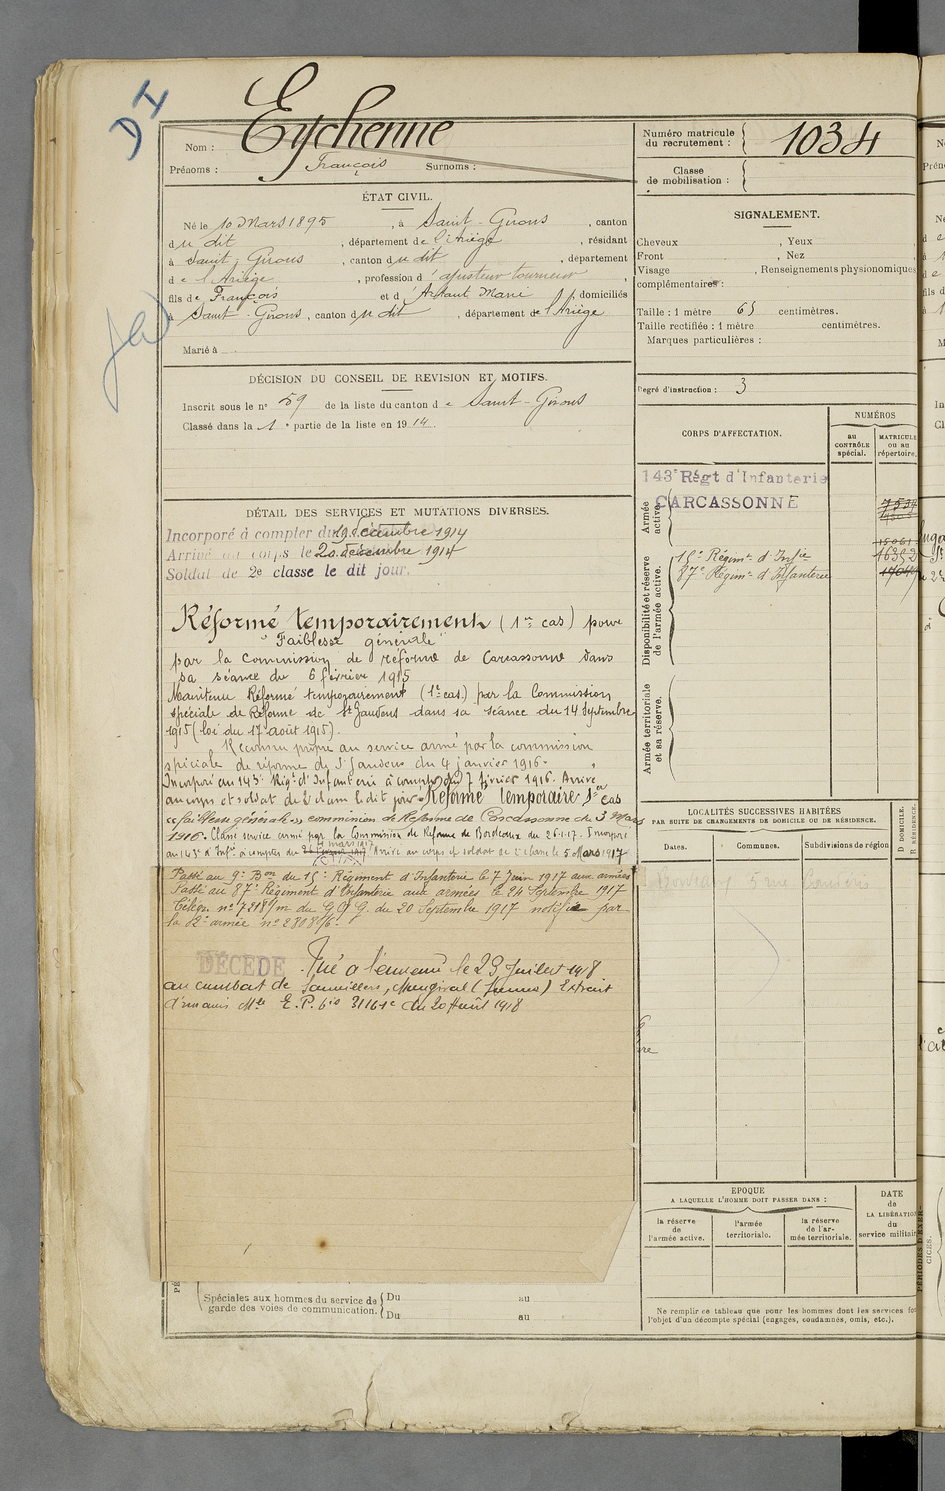 DI
Nom : Eychenne
Numéro matricule du recrutement : 1034
Prénoms : François Surnoms :
Classe de mobilisation :
ÉTAT CIVIL.
Né le 10 Mars 1895, à Saint-Girons, canton
du dit, département de l'Ariège, résidant
à Saint-Girons, canton du dit, département
de l'Ariège, profession d'ajusteur tourneur,
fils de François et d' Artaut Marie domiciliés
à Saint-Girons, canton du dit, département de l'Ariège
Marié à
DÉCISION DU CONSEIL DE REVISION ET MOTIFS.
Inscrit sous le n° 59 de la liste du canton de Saint-Girons
Classé dans la 1e partie de la liste en 1914.
DÉTAIL DES SERVICES ET MUTATIONS DIVERSES.
Incorporé à compter du 19 décembre 1914
Arrivé au corps le 20 décembre 1914
Soldat de 2e classe le dit jour.
Réformé temporairement (1er cas) pour
"Faiblesse générale"
par la Commission de réforme de Carcassonne dans
sa séance du 6 février 1915
Maintenu Réformé temporairement (1er cas) par la Commission
spéciale de Réforme de St Gaudens dans sa séance du 14 Septembre
1915 (loi du 17 août 1915).
Reconnu propre au service armé par la commission
spéciale de réforme de St Gaudens du 4 janvier 1916.
Incorporé au 143e Régt d'Infanterie à compter du 7 février 1916. Arrivé
au corps et soldat de 2e classe le dit jour. Réformé temporaire 1er cas
"faiblesse générale" commission de Réforme de Carcassonne du 3 Mars
1916. Classé service armé par la Commission de Réforme de Bordeaux du 26-1-17. Incorporé
au 143e d'Infie à compter du 4 mars 1917 Arrivé au corps et soldat de 2e classe le 5 Mars 1917
Passé au 9e Bon du 15e Régiment d'Infanterie le 7 Juin 1917 aux armées
Passé au 87e Régiment d'Infanterie aux armées le 24 Septembre 1917
Télég. n° 7218/m du G Q G. du 20 Septembre 1917 notifié par
la 2e armée n° 2808/6.
DÉCÉDÉ Tué à l'ennemi le 23 Juillet 1918
au combat de Sauvillers, Mongival (Somme) Extrait
d'un avis Mle E.P. 610 31161c du 20 Août 1918
Spéciales aux hommes du service de garde des voies de communication.
Du au
Du au
SIGNALEMENT.
Cheveux , Yeux
Front , Nez
Visage , Renseignements physionomiques
complémentaires :
Taille : 1 mètre 65 centimètres.
Taille rectifiée : 1 mètre centimètres.
Marques particulières :
Degré d'instruction : 3
CORPS D'AFFECTATION.
NUMÉROS
au CONTRÔLE spécial.
MATRICULE ou au répertoire.
Armée active.
143e Régt d'Infanterie
CARCASSONNE
Disponibilité et réserve de l'armée active.
15e Régimt d'Infie
87e Régimt d'Infanterie
16352
Armée territoriale et sa réserve.
LOCALITÉS SUCCESSIVES HABITÉES
PAR SUITE DE CHANGEMENTS DE DOMICILE OU DE RÉSIDENCE.
Dates. Communes. Subdivisions de région
D DOMICILE.
R RÉSIDENCE.
Bordeaux 5 rue
EPOQUE
A LAQUELLE L'HOMME DOIT PASSER DANS :
la réserve de l'armée active.
l'armée territoriale.
la réserve de l'armée territoriale.
DATE de LA LIBÉRATION du service militaire
Ne remplir ce tableau que pour les hommes dont les services
l'objet d'un décompte spécial (engagés, condamnés, omis, etc.).